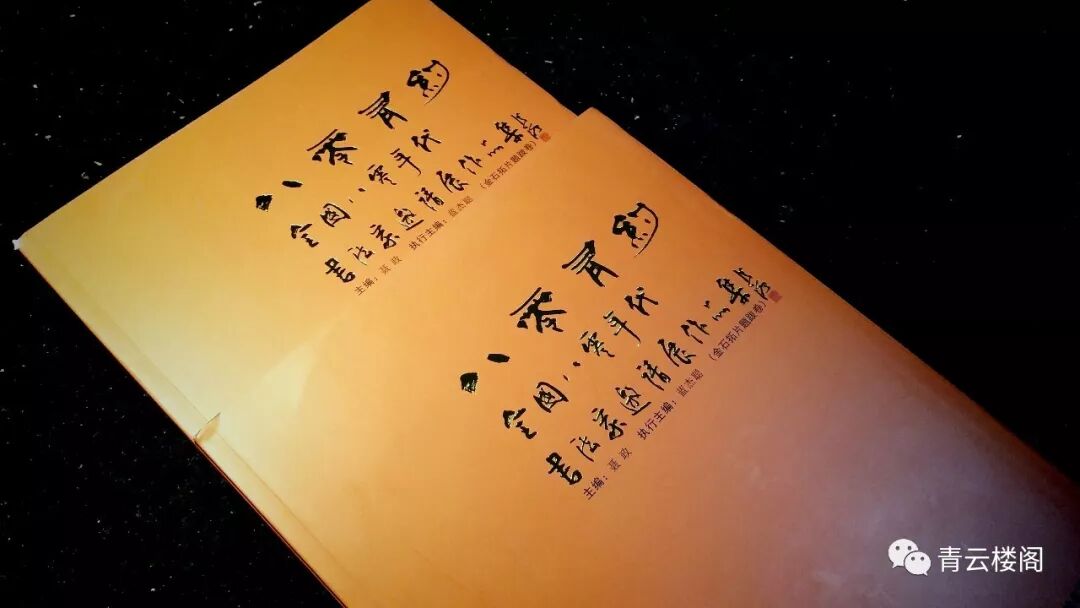 八零有约
全国八零年代
书法家邀请展作品集
（金石拓片题跋卷）
主编：聂政 执行主编：蓝杰聪
八零有约
全国八零年代
书法家邀请展作品集
（金石拓片题跋卷）
主编：聂政 执行主编：蓝杰聪
青云楼阁